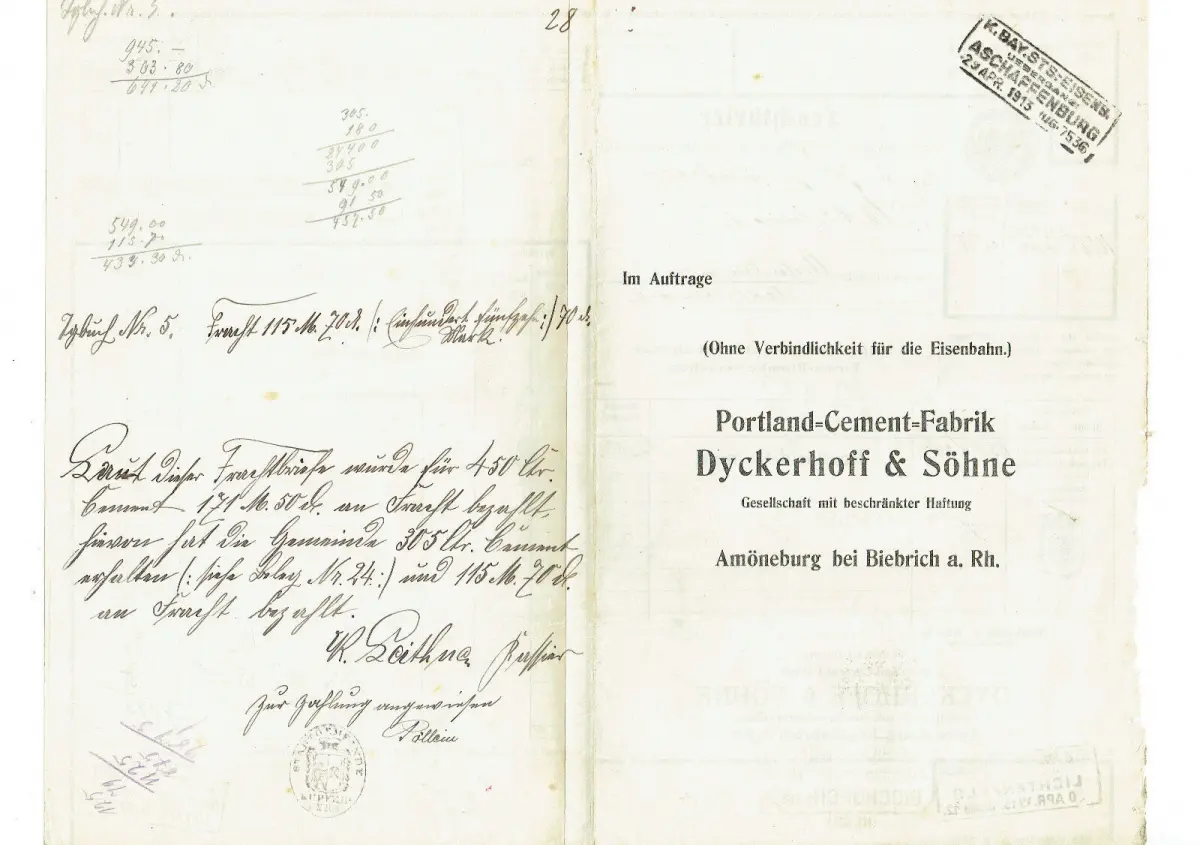 Tgbch. Nr. 5.
28
945. —
303. 80
641. 20 d.
305.
180
24400
305
549.00
91 50
457.50
549.00
115.70
433.30 d.
Tgbuch Nr. 5. Fracht 115 M. 70 d. (: Einhundert fünfzehn :) 70 d.
Mark.
Laut dieser Frachtbriefe wurde für 450 Ctr.
Cement 171 M. 50 d. an Fracht bezahlt,
hievon hat die Gemeinde 305 Ctr. Cement
erhalten (: siehe Beleg Nr. 24 :) und 115 M. 70 d.
an Fracht bezahlt.
K. Kassier
Zur Zahlung angewiesen
Pöllein
STADTGEMEINDE
KUPFERBERG
1125
K.BAY.STS-EISENB.
UEBERGANG
ASCHAFFENBURG
29 APR. 1913 7536
Im Auftrage
(Ohne Verbindlichkeit für die Eisenbahn.)
Portland=Cement=Fabrik
Dyckerhoff & Söhne
Gesellschaft mit beschränkter Haftung
Amöneburg bei Biebrich a. Rh.
LICHTENFELS